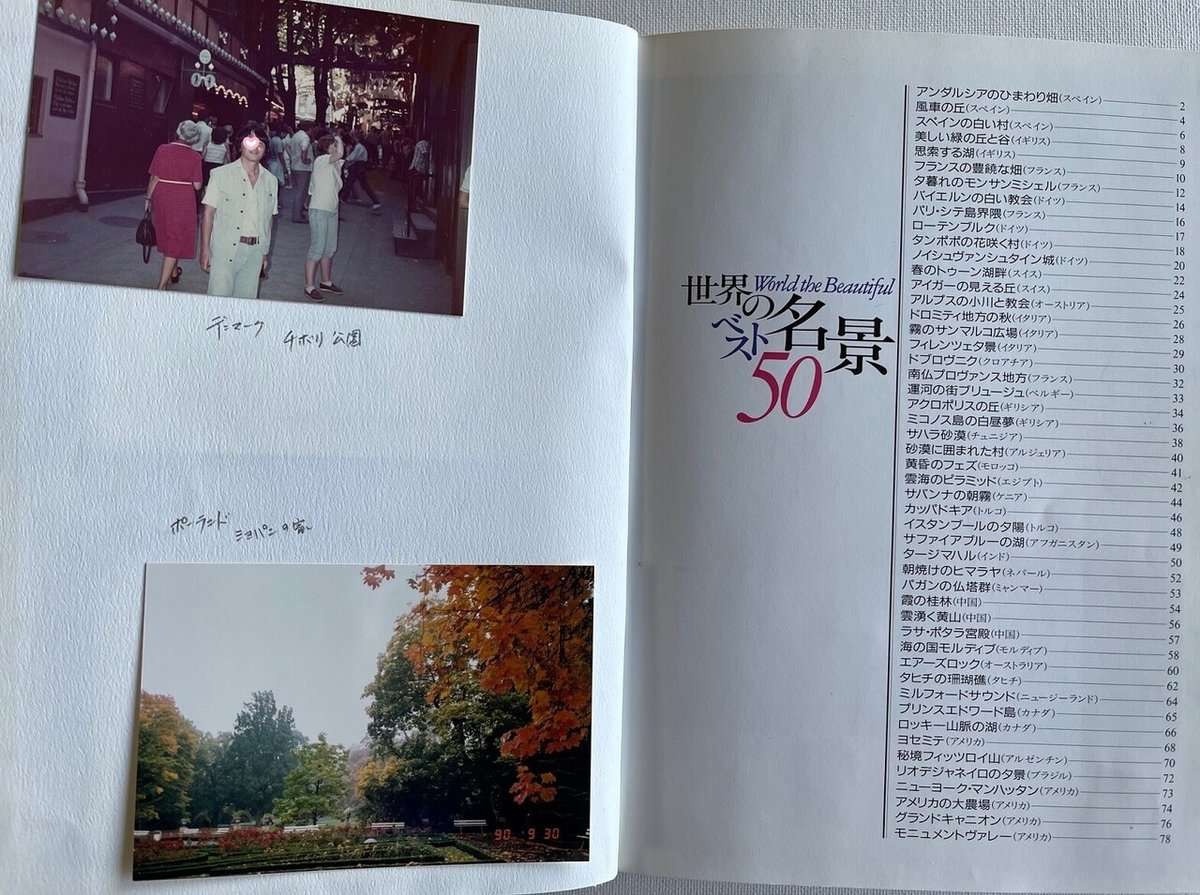 デンマーク
チボリ公園
ポーランド
ショパンの家
90 9 30
World the Beautiful
世界の名景
ベスト
50
アンダルシアのひまわり畑(スペイン) 2
風車の丘(スペイン) 4
スペインの白い村(スペイン) 6
美しい緑の丘と谷(イギリス) 8
思索する湖(イギリス) 9
フランスの豊饒な畑(フランス) 10
夕暮れのモンサンミシェル(フランス) 12
バイエルンの白い教会(ドイツ) 14
パリ・シテ島界隈(フランス) 16
ローテンブルク(ドイツ) 17
タンポポの花咲く村(ドイツ) 18
ノイシュヴァンシュタイン城(ドイツ) 20
春のトゥーン湖畔(スイス) 22
アイガーの見える丘(スイス) 24
アルプスの小川と教会(オーストリア) 25
ドロミティ地方の秋(イタリア) 26
霧のサンマルコ広場(イタリア) 28
フィレンツェ夕景(イタリア) 29
ドブロヴニク(クロアチア) 30
南仏プロヴァンス地方(フランス) 32
運河の街ブリュージュ(ベルギー) 33
アクロポリスの丘(ギリシア) 34
ミコノス島の白昼夢(ギリシア) 36
サハラ砂漠(チュニジア) 38
砂漠に囲まれた村(アルジェリア) 40
黄昏のフェズ(モロッコ) 41
雲海のピラミッド(エジプト) 42
サバンナの朝霧(ケニア) 44
カッパドキア(トルコ) 46
イスタンブールの夕陽(トルコ) 48
サファイアブルーの湖(アフガニスタン) 49
タージマハル(インド) 50
朝焼けのヒマラヤ(ネパール) 52
パガンの仏塔群(ミャンマー) 53
霞の桂林(中国) 54
雲湧く黄山(中国) 56
ラサ・ポタラ宮殿(中国) 57
海の国モルディブ(モルディブ) 58
エアーズロック(オーストラリア) 60
タヒチの珊瑚礁(タヒチ) 62
ミルフォードサウンド(ニュージーランド) 64
プリンスエドワード島(カナダ) 65
ロッキー山脈の湖(カナダ) 66
ヨセミテ(アメリカ) 68
秘境フィッツロイ山(アルゼンチン) 70
リオデジャネイロの夕景(ブラジル) 72
ニューヨーク・マンハッタン(アメリカ) 73
アメリカの大農場(アメリカ) 74
グランドキャニオン(アメリカ) 76
モニュメントヴァレー(アメリカ) 78